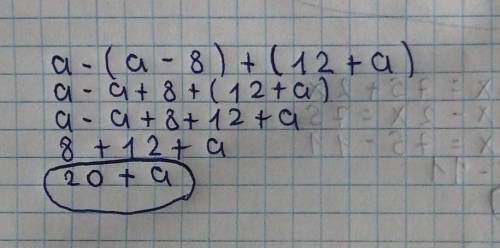 a - (a - 8) + (12 + a)
a - a + 8 + (12 + a)
a - a + 8 + 12 + a
8 + 12 + a
20 + a